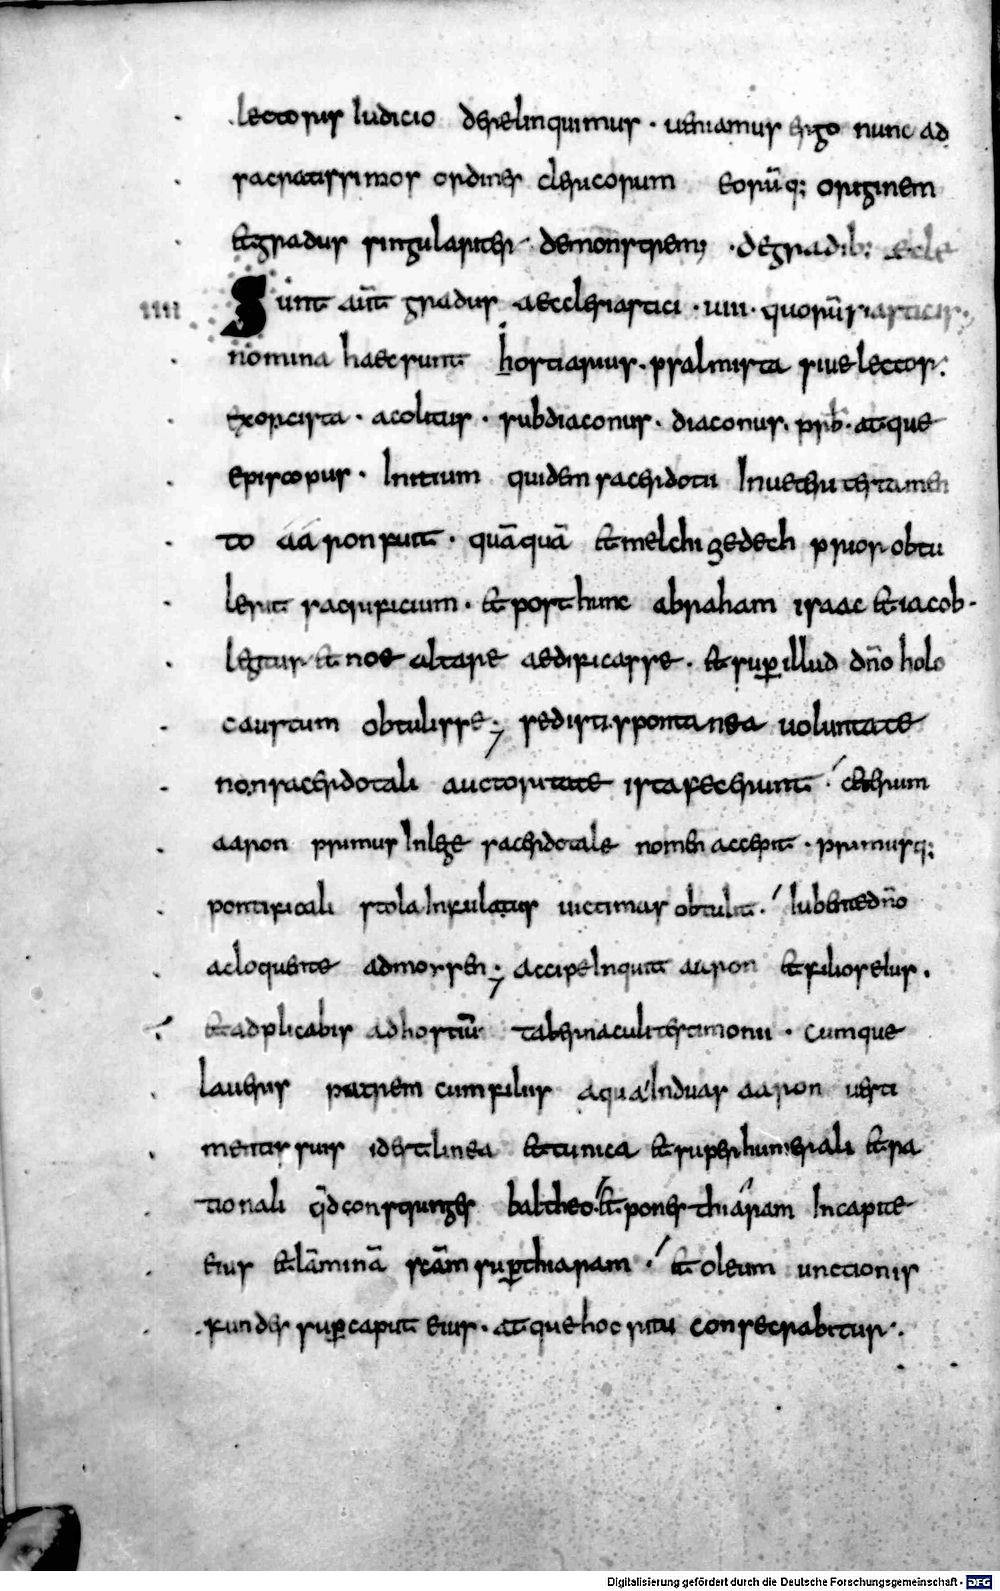 lectoris Iudicio derelinquimus · ueniamus ergo nunc ad
sacratissimos ordines clericorum eorūq; originem
& gradus singulariter demonstrem; · de gradib; ecle
IIII Sunt aūt gradus aecclesiastici · uiii · quorū siasticis ·
nomina haec sunt hostiarius · psalmista siue lector ·
exorcista · acolitus · subdiaconus · diaconus · prb̄ · atque
episcopus · Initium quidem sacerdotii In ueteri testamen
to aaron fuit · quāquā & melchisedech prior obtu
lerit sacrificium · & post hunc abraham isaac & iacob ·
legitur & noe altare aedificasse · & sup illud dño holo
caustum obtulisse ; sed isti spontanea uoluntate
non sacerdotali auctoritate ista fecerunt · ceterum
aaron primus In lege sacerdotale nomen accepit · primusq;
pontificali stola Infulatus uictimas obtulit · Iubente dño
acloquente ad mosen ; accipe Inquit aaron & filios eius ·
& adplicabis ad hostiū tabernaculi testimonii · cumque
laueris patrem cum filiis aqua Induas aaron uesti
mentis suis id est linea & tunica & superhumerali & ra
tionali q̄d constringes baltheo · & pones thiaram In capite
eius & lāminā scām sup thiaram · & oleum unctionis
fundes sup caput eius · atque hoc ritu consecrabitur ·
Digitalisierung gefördert durch die Deutsche Forschungsgemeinschaft · DFG